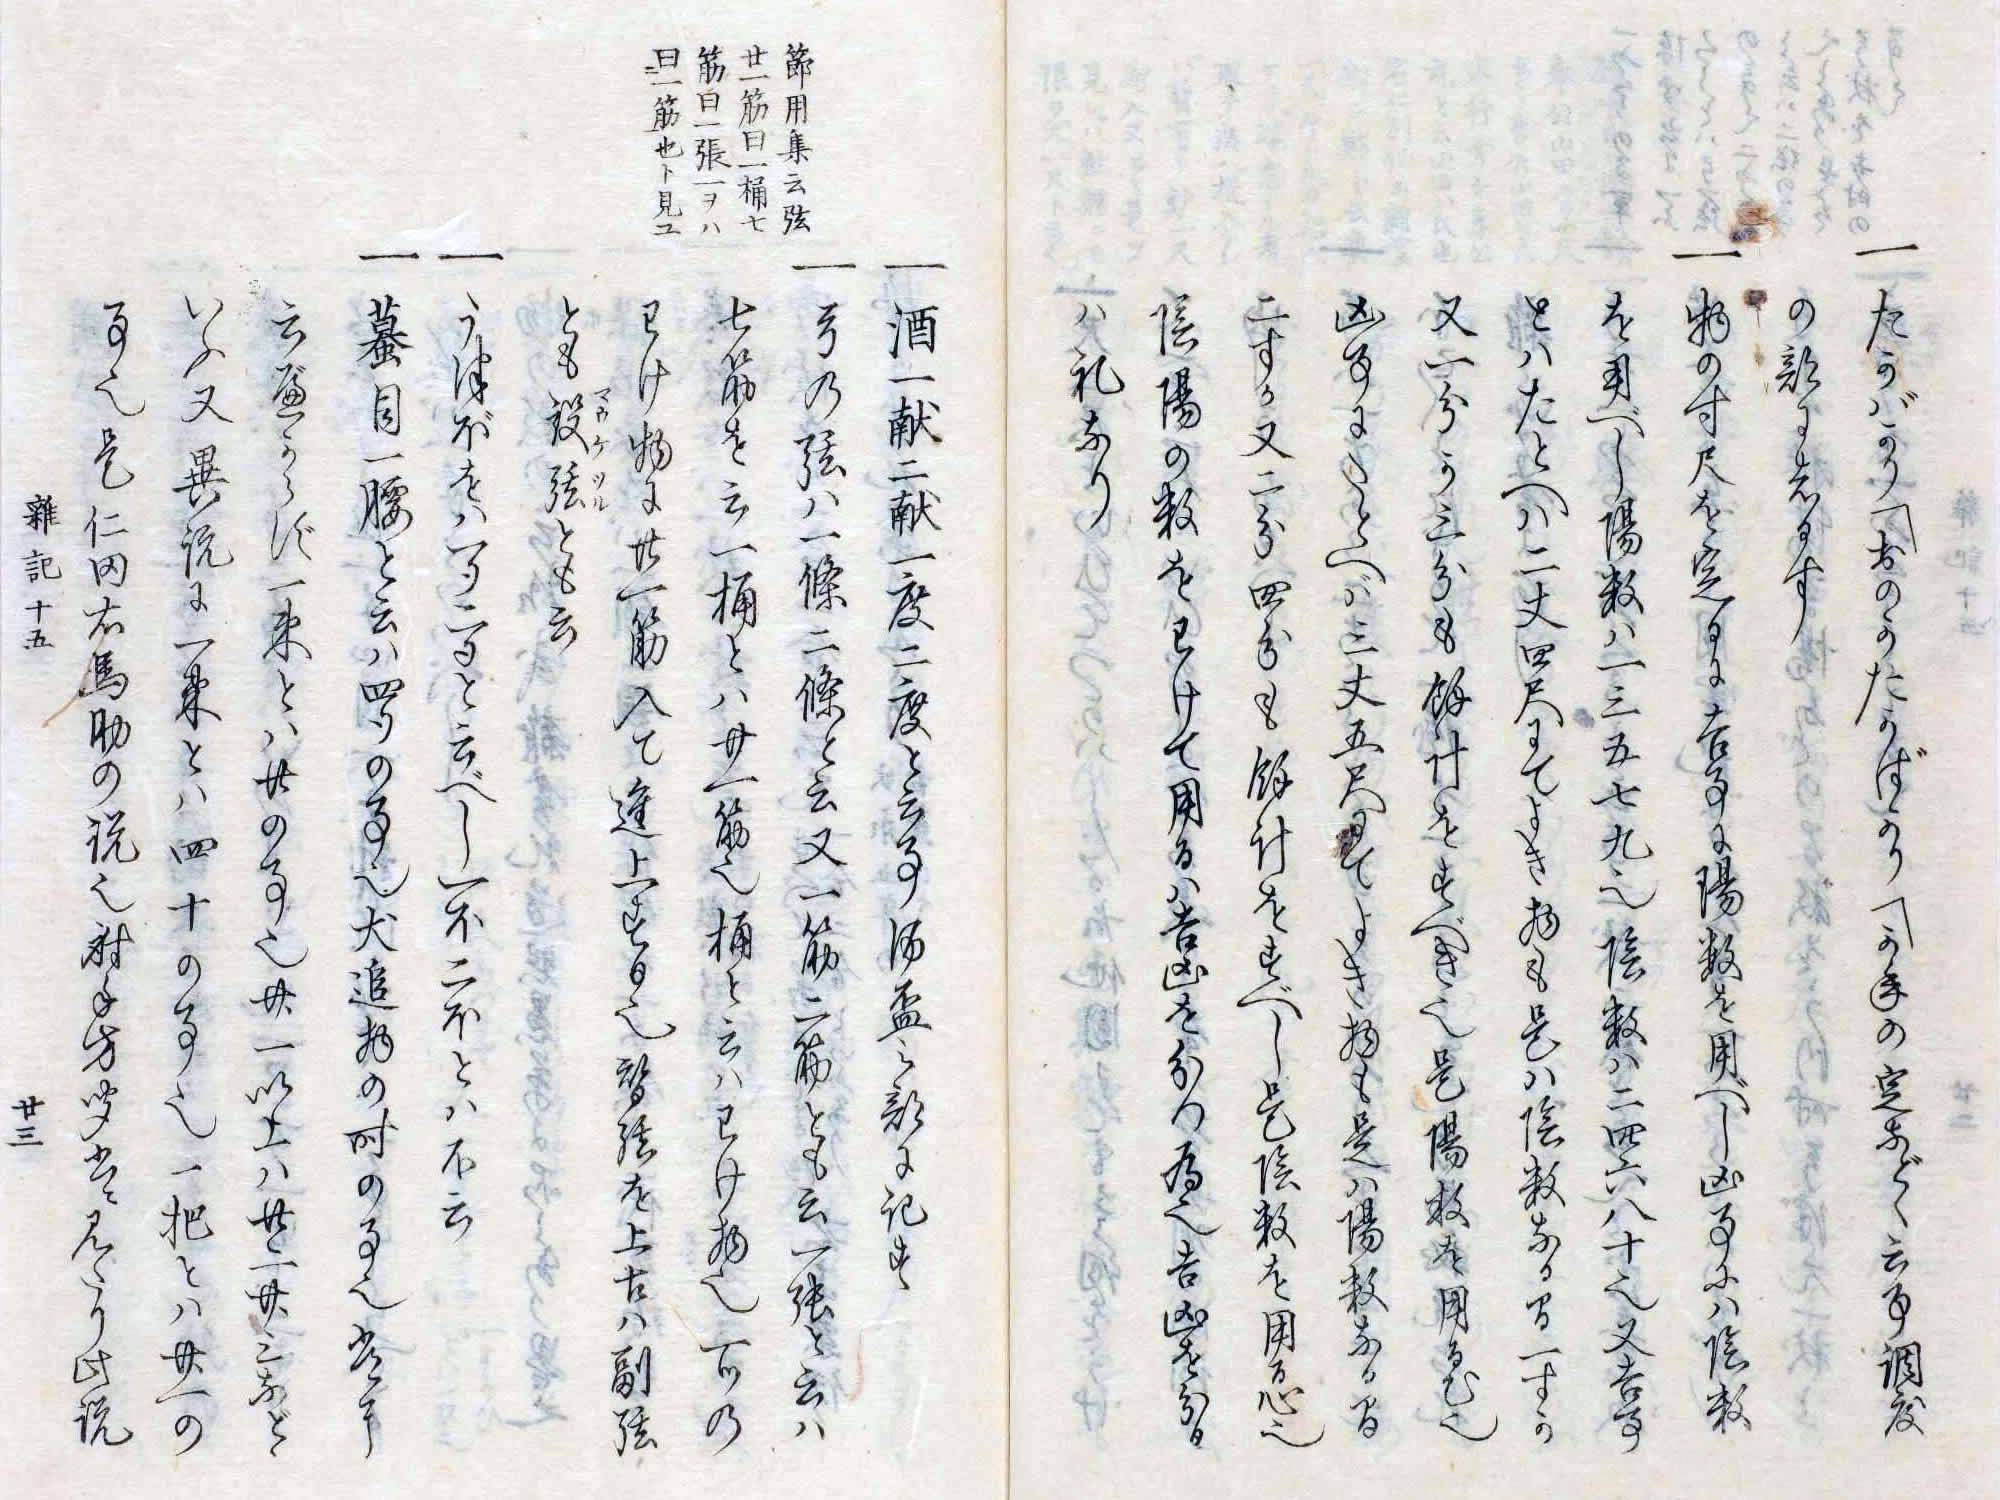 一 たかばかり「おのかたかばかり「かねの定などゝ云事調度
の部に志るす
一 物の寸尺を定るに吉事に陽数を用べし凶事にハ陰数
を用べし陽数ハ一三五七九也陰数ハ二四六八十也又吉事
とハたとへハ二丈四尺にてよき物も是ハ陰数なる間一寸か
又一分か三分も餘計をすべき也是陽数を用る心也
凶事にたとへバ三丈五尺にてよき物も是ハ陽数なる間
二寸か又二分四分も餘計をすべし是陰数を用る心也
陰陽の数をわけて用るハ吉凶を分つ為也吉凶を分る
ハ礼なり
節用集云弦
廿一筋曰一桶七
筋曰一張一ヲハ
曰一筋也ト見ユ
一 酒一献二献一度二度と云事酒盃之部に記す
一 弓乃弦ハ一條二條と云又一筋二筋とも云一張と云ハ
七筋を云一桶とハ廿一筋也桶と云ハわけ物也一つ乃
わけ物に廿一筋入て進上する也替弦を上古ハ副弦
とも設弦とも云
マウケツル
一 うつぼをハ一つ二つと云べし一不二不とハ不云
一 蟇目一腰と云ハ四つの事也犬追物の時の事也常に
云
いふ又異説に一束とハ四十の事也一把とハ廿一の
事也是仁田右馬助の説也射手方聞書に見えたり此説
雜記十五
廿三